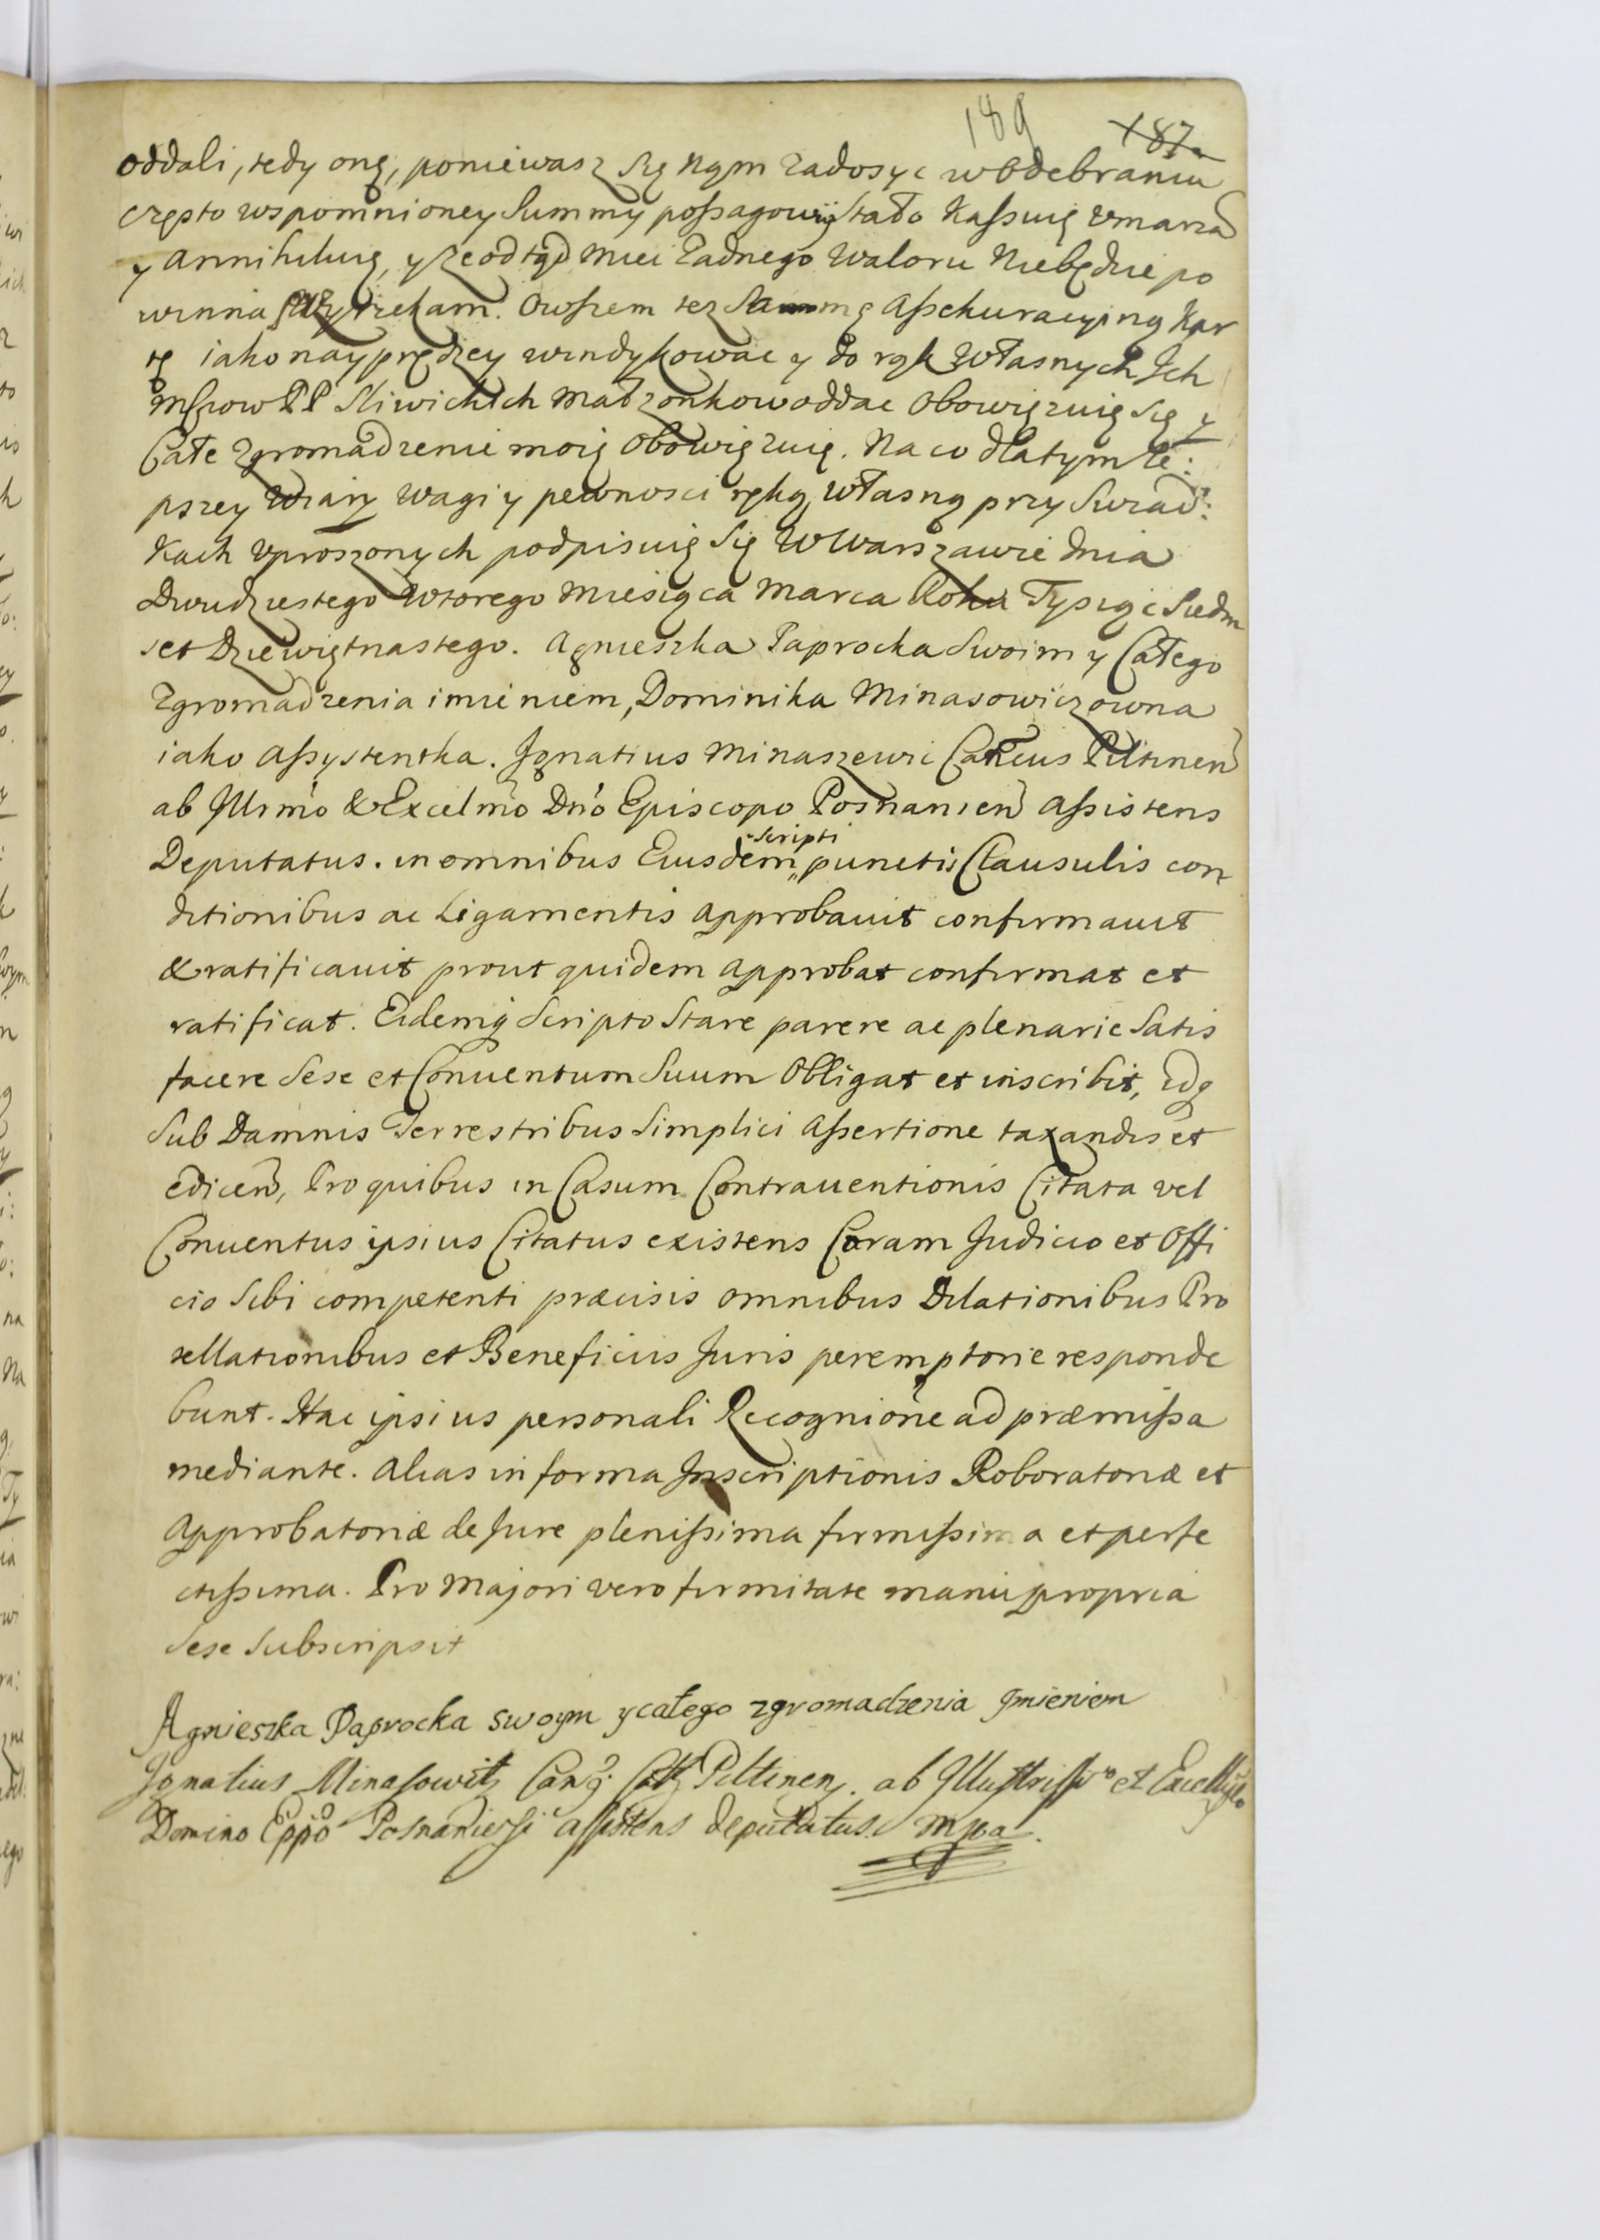 189 187
oddali, tedy onę, poniewasz Się Nąm zadosyc w Odebraniu
często wspomnioney Summy possagowij Stało Kassuię Vmarzã
y Annihiluię, y że odtąd mieć Żadnego Waloru Niebędzie po
winna przyrzekam. Owszem tez Sammę Assekuracyiną Kar
tę iako nayprędzey windykowac y do rąk Własnych Ich
Msciow PP Sliwickich Małzonkow oddac Obowięzuię Się y
Całe Zgromadzenie moię Obowięzuię. Na co dla tym le:
pszey Wiary Wagi y pewnosci ręką Własną przy Swiad:
Kach Vproszonych podpisuię Się W Warszawie Dnia
Dwudziestego Wtorego Miesiąca Marca Roku Tysiąc Siedm
set Dziewiętnastego. Agnieszka Paprocka Swoim y Całego
Zgromadzenia imieniem, Dominika Minasowiczowna
iako Assystentka. Ignatius Minaszewic Catħcus Piltinen
ab Illrmo & Excelmo Dno Episcopo Posnanien Assistens
Deputatus. in omnibus Eiusdem scripti punctis Clausulis con
ditionibus ac Ligamentis approbavit confirmavit
& ratificavit prout quidem approbat confirmat et
ratificat. Eidemq Scripto Stare parere ac plenarie Satis
facere Sese et Conuentum Suum Obligat et inscribit, idq
Sub Damnis Terrestribus Simplici Assertione taxandis et
edicen, Pro quibus in Casum Contrauentionis Citata vel
Conuentus ipsius Citatus existens Coram Judicio et Offi
cio Sibi competenti præcisis omnibus Dilationibus Pro
tellationibus et Beneficiis Juris peremptorie responde
bunt. Hac ipsius personali Recognione ad præmissa
mediante. Alias in forma Inscriptionis Roboratoriæ et
Approbatoriæ de Jure plenissima firmissima et perfe
ctissima. Pro Majori vero firmitate manu propria
Sese Subscripsit
Agnieszka Paprocka swoym y całego zgromadzenia Imieniem
Ignatius Minasowitz Piltinen. ab Illustrisso et Excellsso
Domino Eppo Posnaniensi assistens deputatus. mpa.